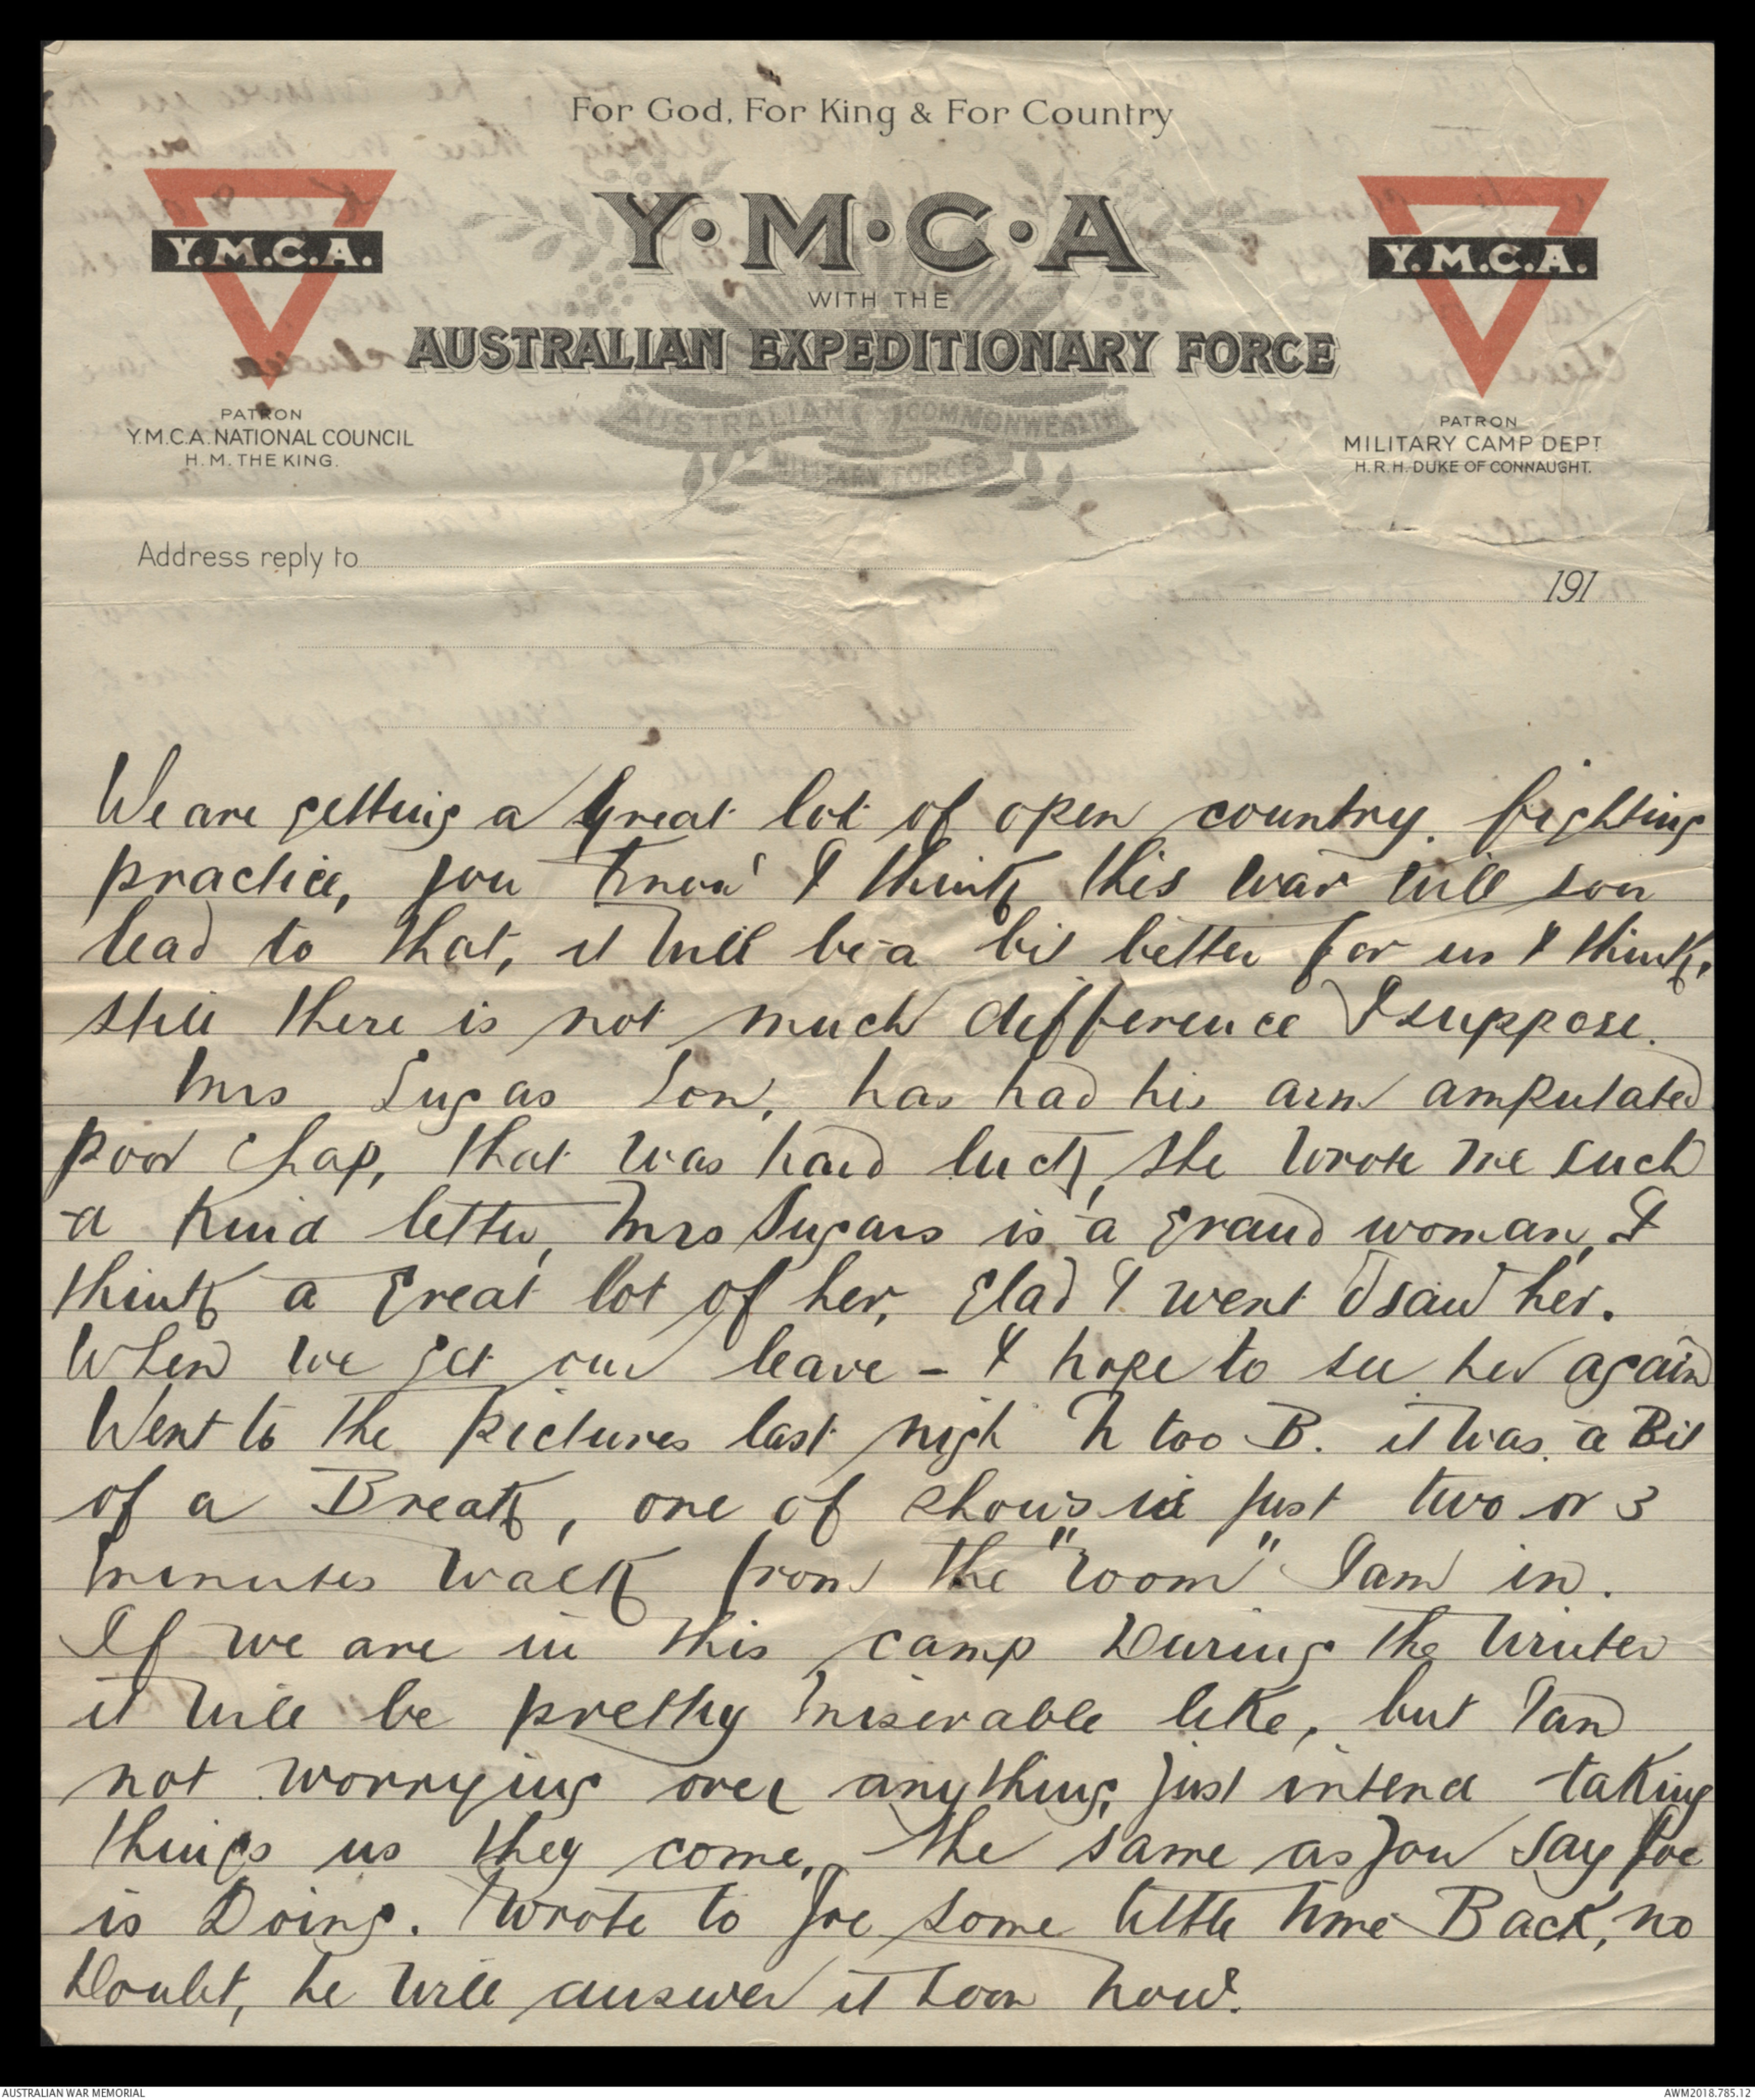 For God, For King & For Country
Y.M.C.A.
Y·M·C·A
Y.M.C.A.
WITH THE
AUSTRALIAN EXPEDITIONARY FORCE
AUSTRALIAN COMMONWEALTH
MILITARY FORCES
PATRON
Y.M.C.A. NATIONAL COUNCIL
H. M. THE KING.
PATRON
MILITARY CAMP DEPT
H.R.H. DUKE OF CONNAUGHT.
Address reply to
191
We are getting a great lot of open country. fighting
practice, you know I think this war will son
lead to that, it will be a bit better for us I think,
still there is not much difference I suppose.
Mrs Sugas Son, has had his arm amputated
poor chap, that was hard luck, she wrote me such
a kind letter, Mrs Sugars is a grand woman, I
think a great lot of her, glad I went & saw her.
When we get our leave - I hope to see her again
Went to the pictures last nigh too B. it was a Bit
of a Break, one of shows is just two or 3
minutes walk from the "room" I am in.
If we are in this camp During the Winter
it will be pretty miserable like, but I am
not worrying over anything, just intend taking
things as they come, the same as you say Joe
is Doing. I wrote to Joe some little time Back, no
Doubt, he will answer it soon now.
AUSTRALIAN WAR MEMORIAL
AWM2018.785.12